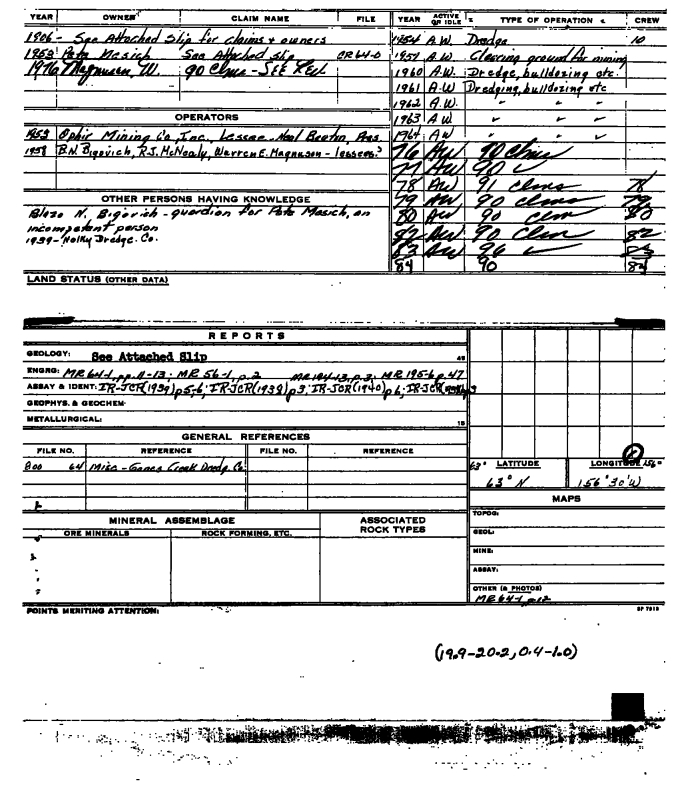 YEAR OWNER CLAIM NAME FILE
1906- See Attached Slip for claims & owners
1953 Pete Mesich See Attached Slip CR 64-0
1976 Magnuson, W. 90 Clms - SEE
OPERATORS
1953 Ophir Mining Co., Inc., Lessee - Neal Beaton, Pres.
1958 B.N. Bigovich, R.J. McNealy, Warren E. Magnuson - lessees?
OTHER PERSONS HAVING KNOWLEDGE
Blazo N. Bigovich - guardion for Pete Mesich, an
incompetent person
1939- Holky Dredge. Co.
LAND STATUS (OTHER DATA)
YEAR ACTIVE OR IDLE TYPE OF OPERATION CREW
1954 A.W. Dredge 10
1959 A.W. Clearing ground for mining
1960 A.W. Dredge, bulldozing etc.
1961 A.W Dredging, bulldozing etc
1962 A.W. " " "
1963 A.W " " "
1964 AW " " "
76 AW 90 Clms
77 AW 90 ✓
78 AW 91 clms 78
79 AW 90 clms 79
80 AW 90 clm 80
82 AW 90 Clm 82
83 AW 90 ✓ 83
84 90 84
REPORTS
GEOLOGY: See Attached Slip
ENGRG: MR 64-1, pp. 11-13; MR 56-1, p. 2 MR 194-13, p. 3; MR 195-6 p. 47
ASSAY & IDENT: IR-JCR(1939) p5-6; IR-JCR(1938) p3; IR-JCR(1940) p6; IR-JCR
GEOPHYS. & GEOCHEM.
METALLURGICAL:
GENERAL REFERENCES
FILE NO. REFERENCE FILE NO. REFERENCE
800 64 Misc - Ganes Creek Dredg. Co.
63° LATITUDE LONGITUDE 156°
63° N 156° 30' W
MAPS
TOPOG:
GEOL:
MINE:
ASSAY:
OTHER (& PHOTOS)
MR 64-1, p. 12
MINERAL ASSEMBLAGE ASSOCIATED ROCK TYPES
ORE MINERALS ROCK FORMING, ETC.
POINTS MERITING ATTENTION:
(19.9-20.2, 0.4-1.0)